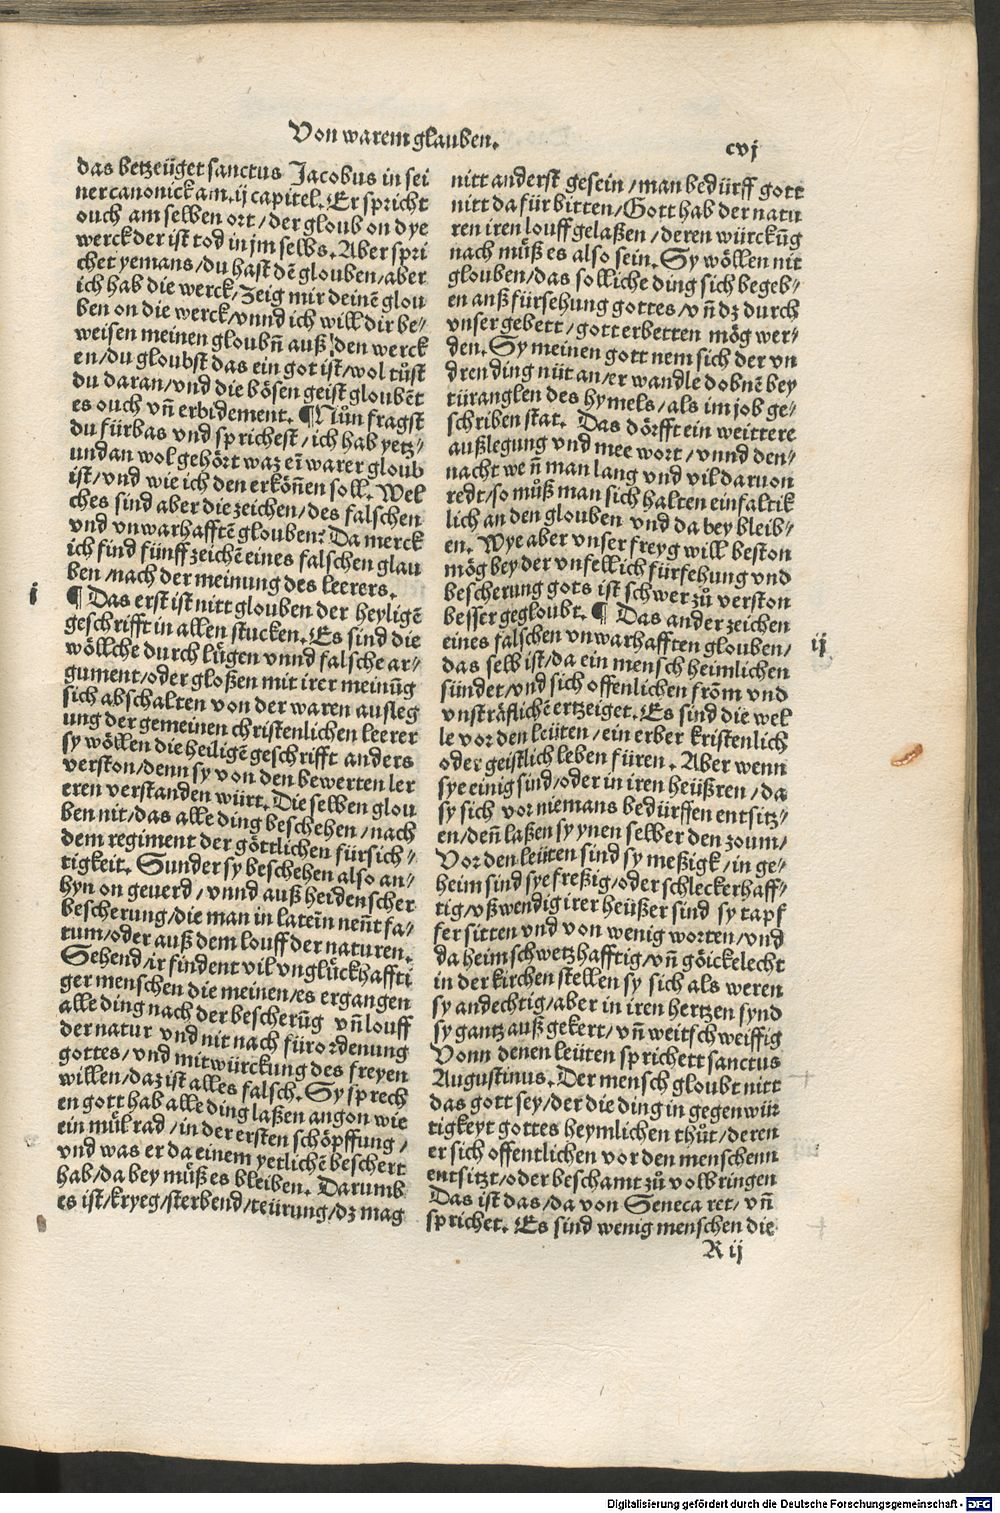 Von warem glauben.
cvj
das betzeüget sanctus Jacobus in sei
ner canonick am .ij capitel. Er spricht
ouch am selben ort/der gloub on dye
werck der ist tod in jm selbs. Aber spri
chet yemans/du hast dē glouben/aber
ich hab die werck/Zeig mir deinē glou
ben on die werck/vnnd ich will dir be-
weisen meinen gloubn̄ auß den werck
en/du gloubst das ein got ist/wol tůst
du daran/vnd die bösen geist gloubēt
es ouch vn̄ erbidement. ¶Nůn fragst
du fürbas vnd sprichest/ich hab yetz-
undan wol gehört waz eī warer gloub
ist/vnd wie ich den erkönnen soll. Wel
ches sind aber die zeichen/des falschen
vnd vnwarhafftē glouben? Da merck
ich find fünff zeichē eines falschen glau
ben/nach der meinung des leerers.
i
¶ Das erst ist nitt glouben der heyligē
geschrifft in allen stucken. Es sind die
wöllche durch lügen vnnd falsche ar-
gument/oder gloßen mit irer meinūg
sich abschalten von der waren ausleg
ung der gemeinen christenlichen leerer
sy wöllen die heiligē geschrifft anders
verston/denn sy von den bewerten ler
eren verstanden würt. Die selben glou
ben nit/das alle ding beschehen/nach
dem regiment der göttlichen fürsich-
tigkeit. Sunder sy beschehen also an-
hyn on geuerd/vnnd auß heidenscher
bescherung/die man in lateīn nen̄t fa-
tum/oder auß dem louff der naturen.
Sehend/ir findent vil vnglückhaffti
ger menschen die meinen/es ergangen
alle ding nach der bescherūg vn̄ louff
der natur vnd nit nach fürordenung
gottes/vnd mitwürckung des freyen
willen/daz ist alles falsch. Sy sprech
en gott hab alle ding laßen angon wie
ein mül rad/in der ersten schöpffung/
vnd was er da einem yetlichē beschert
hab/da bey müß es bleiben. Darumb
es ist/kryeg/sterbend/teürung/dz mag
nitt anderst gesein/man bedürff gott
nitt da für bitten/Gott hab der natu
ren iren louff gelaßen/deren würckūg
nach müß es also sein. Sy wöllen nit
glouben/das solliche ding sich begeb-
en anß fürsehung gottes/vn̄ dz durch
vnser gebett/gott erbetten mög wer-
den. Sy meinen gott nem sich der vn
dren ding nüt an/er wandle dobnē bey
türanglen des hymels/als im job ge-
schriben stat. Das dörfft ein weittere
außlegung vnd mee wort/vnnd den-
nacht wen̄ man lang vnd vil daruon
redt/so můß man sich halten einfaltik
lich an den glouben vnd da bey bleib-
en. Wye aber vnser freyg will beston
mög bey der vnfellich fürsehung vnd
bescherung gots ist schwer zů verston
besser gegloubt. ¶ Das ander zeichen
ij
eines falschen vnwarhafften glouben/
das selb ist/da ein mensch heimlichen
sündet/vnd sich offenlichen frōm vnd
vnsträflichē ertzeiget. Es sind die wel
le vor den leüten/ein erber kristenlich
oder geistlich leben füren. Aber wenn
sye einig sind/oder in iren heüßren/da
sy sich vor niemans bedürffen entsitz-
en/den̄ laßen sy ynen selber den zoum/
Vor den leüten sind sy meßigk/in ge-
heim sind sye freßig/oder schleckerhaff-
tig/vßwendig irer heüßer sind sy tapf
fer sitten vnd von wenig worten/vnd
da heim schwetzhafftig/vn̄ göickelecht
in der kirchen stellen sy sich als weren
sy andechtig/aber in iren hertzen synd
sy gantz auß gekert/vn̄ weitschweiffig
Vonn denen leüten sprichett sanctus
Augustinus. Der mensch gloubt nitt
das gott sey/der die ding in gegenwür
tigkeyt gottes heymlichen thůt/deren
er sich offentlichen vor den menschenn
entsitzt/oder beschamt zů volbringen
Das ist das/da von Seneca ret/vn̄
sprichet. Es sind wenig menschen die
R ij
Digitalisierung gefördert durch die Deutsche Forschungsgemeinschaft - DFG